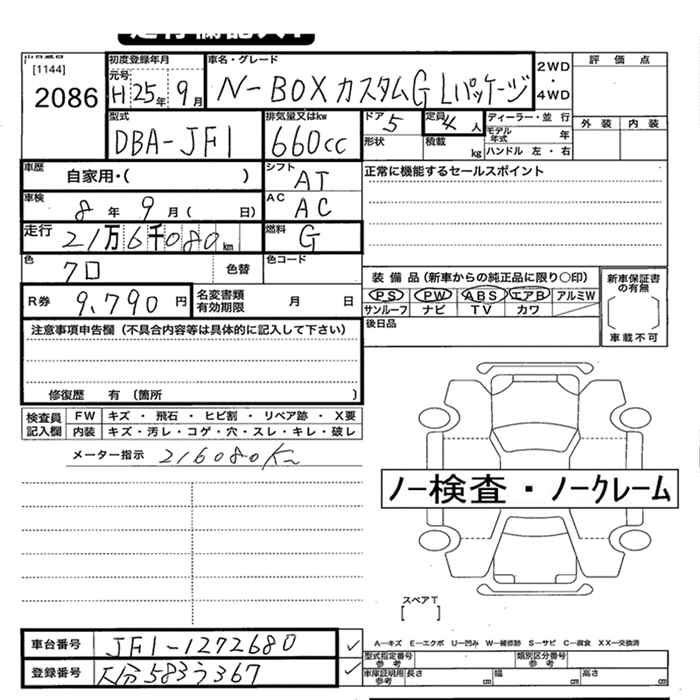 [1144]
2086
初度登録年月
元号
H 25年 9月
車名・グレード
N-BOX カスタムG Lパッケージ
2WD
・
4WD
評価点
外装 内装
型式
DBA-JF1
排気量又はkw
660cc
ドア 5
形状
定員 4 人
積載 kg
ディーラー・並行
モデル年式 年
ハンドル 左・右
車歴
自家用・( )
シフト
AT
正常に機能するセールスポイント
車検
8 年 9 月 ( 日)
AC
AC
走行 21万6千080 km
燃料
G
色
クロ
色替
色コード
装備品(新車からの純正品に限り○印)
PS PW ABS エアB アルミW
サンルーフ ナビ TV カワ
後日品
新車保証書の有無
車載不可
R券 9,790 円
名変書類有効期限 月 日
注意事項申告欄(不具合内容等は具体的に記入して下さい)
修復歴 有(箇所 )
検査員記入欄
FW キズ・飛石・ヒビ割・リペア跡・X要
内装 キズ・汚レ・コゲ・穴・スレ・キレ・破レ
メーター指示 216080Km
ノー検査・ノークレーム
スペアT
[ ]
車台番号 JF1-1272680 ✓
登録番号 大分583う367 ✓
A−キズ E−エクボ U−凹み W−補修跡 S−サビ C−腐食 XX−交換済
型式指定番号 参考 類別区分番号 参考
車庫証明用 参考 長さ cm 幅 cm 高さ cm